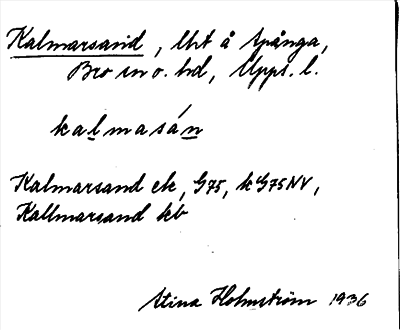 Kalmarsand, lht å Spånga,
Bro sn o. hd, Upps. l.
kalmasán
Kalmarsand ek, G75, kG75NV,
Kallmarsand kb
Stina Holmström 1936